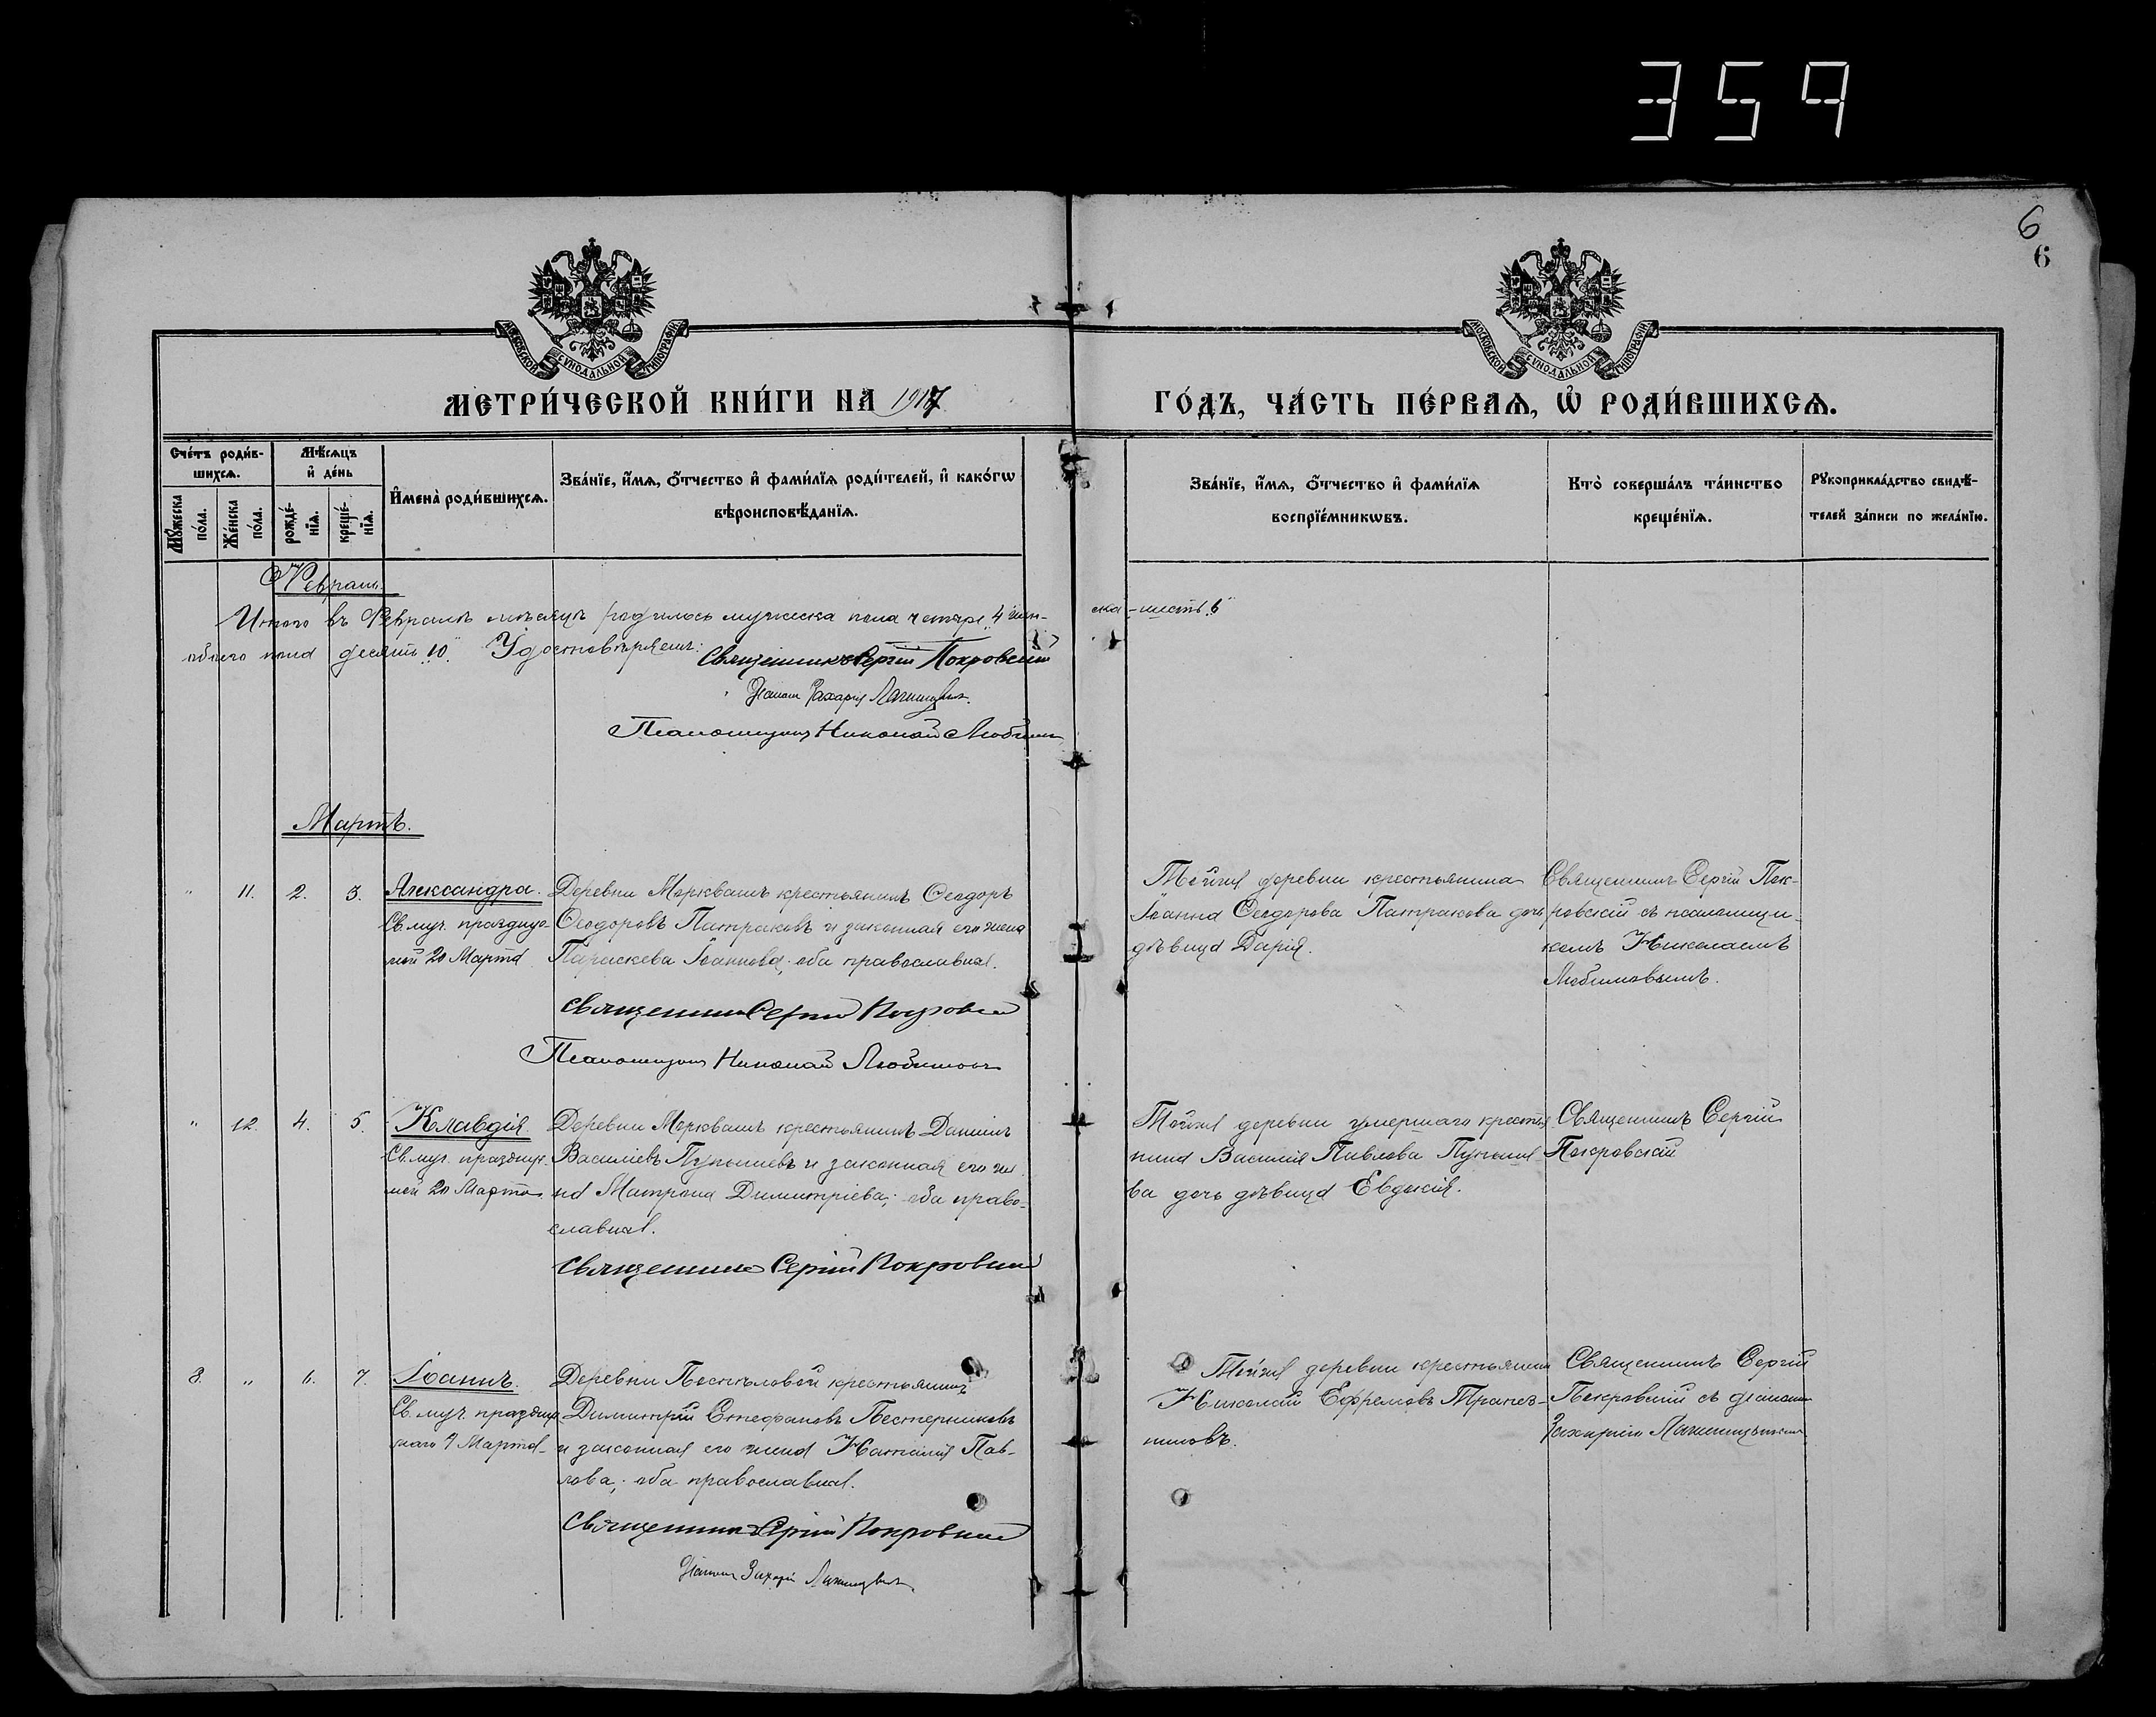 359
6
6
МОСКОВСКОЙ СУНОДАЛЬНОЙ ТИПОГРАФІИ
МОСКОВСКОЙ СУНОДАЛЬНОЙ ТИПОГРАФІИ
МЕТРИ́ЧЕСКОЙ КНИ́ГИ НА 1917
ГО́ДЪ, ЧА́СТЬ ПЕ́РВАѦ, Ѡ РОДИ́ВШИХСѦ.
Сче́тъ роди́в-
шихсѧ.
Мꙋ́жеска
по́ла.
Же́нска
по́ла.
Мѣ́сѧцъ
и҆ де́нь
рожде́-
нїѧ.
креще́-
нїѧ.
И҆мена̀ роди́вшихсѧ.
Зва́нїе, и҆́мѧ, ѻ҆́тчество и҆ фами́лїѧ роди́телей, и҆ како́гѡ
вѣроисповѣ́данїѧ.
Зва́нїе, и҆́мѧ, ѻ҆́тчество и҆ фами́лїѧ
воспрїе́мникѡвъ.
Кто̀ соверша́лъ та́инство
креще́нїѧ.
Рꙋкоприкла́дство свидѣ́-
телей за́писи по жела́нїю.
Февраль.
Итого въ Февралѣ мѣсяцѣ родилось мужеска пола четыре "4" жен-
ска - шесть "6"
обоего пола десять "10". Удостовѣряемъ:
Священникъ Сергій Покровскій
Діаконъ Захарія
Псаломщикъ Николай Любимовъ
Мартъ.
" 11. 2. 3. Александра.
Св. муч. праздпуе-
мой 20 Марта
Деревни Моркваши крестьянинъ Ѳеодоръ
Ѳеодоровъ Патраковъ и законная его жена
Параскева Іоаннова; оба православные.
Священникъ Сергій Покровскій
Псаломщикъ Николай Любимовъ
Той же деревни крестьянина
Іоанна Ѳеодорова Патракова дочь
дѣвица Дарія.
Священникъ Сергій Пок-
ровскій съ псаломщи-
комъ Николаемъ
Любимовымъ.
" 12. 4. 5. Клавдія.
Св. муч. праздпуе-
мой 20 Марта.
Деревни Моркваши крестьянинъ Даніилъ
Василіевъ и законная его же-
на Матрона Димитріева; оба право-
славные.
Священникъ Сергій Покровскій
Той же деревни умершаго крестья-
нина Василія Павлова
ва дочь дѣвица Евдокія.
Священникъ Сергій
Покровскій
8. " 6. 7. Іоаннъ.
Св. муч. праздпуе-
маго 4 Марта
Деревни крестьянинъ
Димитрій Стефановъ Пестерниковъ
и законная его жена Наталія Пав-
лова; оба православные.
Священникъ Сергій Покровскій
Діаконъ Захарія
Той же деревни крестьянинъ
Николай Ефремовъ Трапез-
никовъ.
Священникъ Сергій
Покровскій съ діакономъ
Захаріею